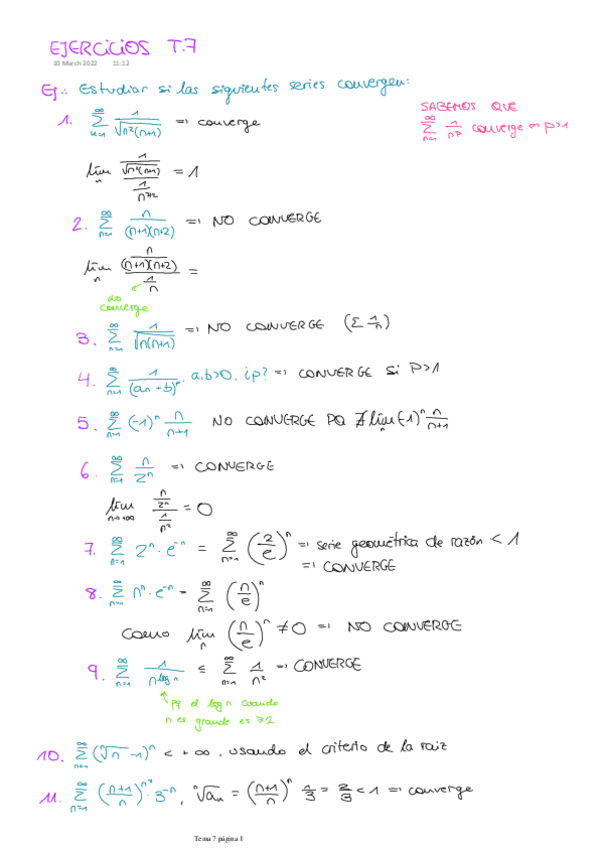 EJERCICIOS T.7
10 March 2022 11:12
Ej.: Estudiar si las siguientes series convergen:
SABEMOS QUE
∑_{n=1}^{∞} 1/n^p converge ⇔ p>1
1. ∑_{n=1}^{∞} 1/√(n²(n+1)) ⇒ converge
lim_n (1/√(n²(n+1)))/(1/n^{3/2}) = 1
2. ∑_{n=1}^{∞} n/((n+1)(n+2)) ⇒ NO CONVERGE
lim_n (n/((n+1)(n+2)))/(1/n) =
do
converge
3. ∑_{n=1}^{∞} 1/√(n(n+1)) ⇒ NO CONVERGE (∑ 1/n)
4. ∑_{n=1}^{∞} 1/(an+b)^p, a,b>0, ¿p? ⇒ CONVERGE si P>1
5. ∑_{n=1}^{∞} (-1)^n n/(n+1) NO CONVERGE PQ ∄ lim_n (-1)^n n/(n+1)
6. ∑_{n=1}^{∞} n/2^n ⇒ CONVERGE
lim_{n→+∞} (n/2^n)/(1/n²) = 0
7. ∑_{n=1}^{∞} 2^n · e^{-n} = ∑_{n=1}^{∞} (2/e)^n ⇒ serie geométrica de razón < 1
⇒ CONVERGE
8. ∑_{n=1}^{∞} n^n · e^{-n} = ∑_{n=1}^{∞} (n/e)^n
Como lim_n (n/e)^n ≠ 0 ⇒ NO CONVERGE
9. ∑_{n=1}^{∞} 1/n^{log n} ≤ ∑_{n=1}^{∞} 1/n² ⇒ CONVERGE
Pq el log n cuando
n es grande es ≥2
10. ∑_{n=1}^{∞} (ⁿ√n -1)^n < +∞, usando el criterio de la raiz
11. ∑_{n=1}^{∞} ((n+1)/n)^{n²} · 3^{-n}, ⁿ√a_n = ((n+1)/n)^n 1/3 = 2/3 < 1 ⇒ converge
Tema 7 página 1